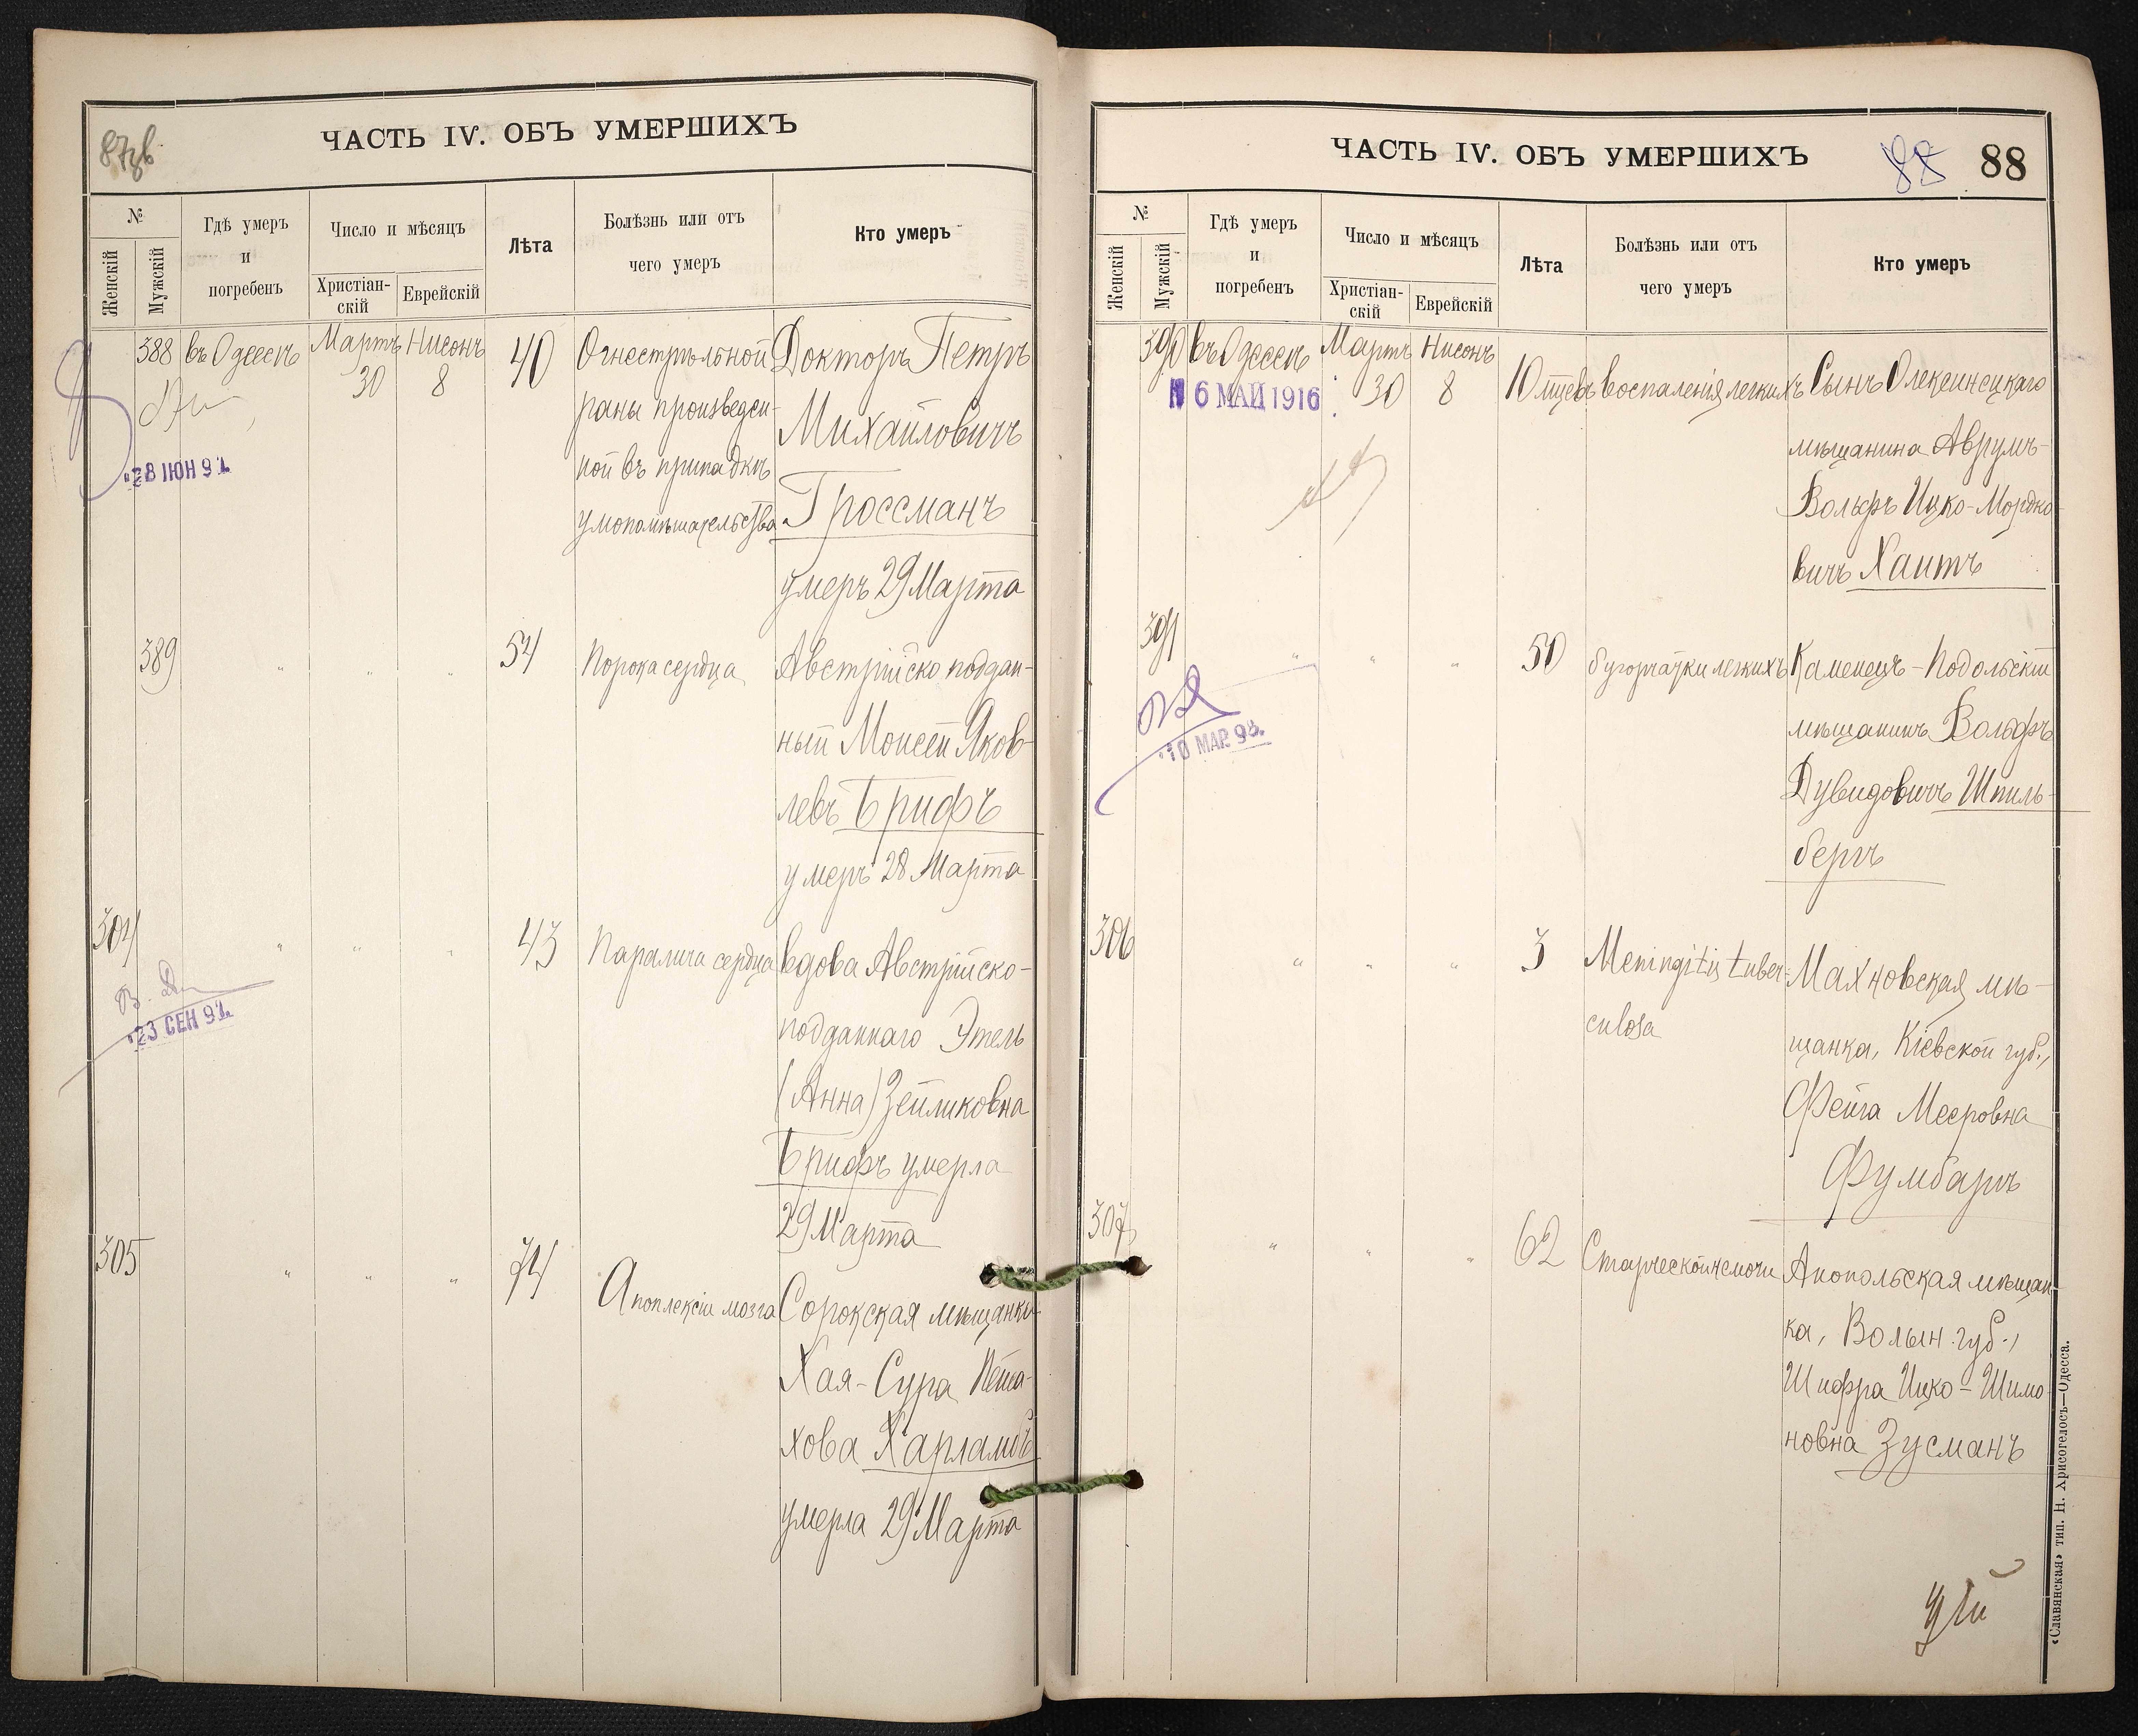 87зв
ЧАСТЬ IV. ОБЪ УМЕРШИХЪ
№
Женскій
Мужскій
Гдѣ умеръ
и
погребенъ
Число и мѣсяцъ
Христіан-
скій
Еврейскій
Лѣта
Болѣзнь или отъ
чего умеръ
Кто умеръ
388 въ Одессѣ Мартъ 30 Нисонъ 8 40
Огнестрѣльной
раны произведен-
ной въ припадкѣ
умопомѣшательства
Докторъ Петръ
Михайловичъ
Гроссманъ
умеръ 29 Марта
28 ІЮН 91
389 " " " 54
Порока сердца
Австрійско поддан-
ный Моисей Яков-
левъ Брифъ
умеръ 28 Марта
304 " " " 43
Паралича сердца
вдова Австрійско-
подданнаго Этель
(Анна) Зейликовна
Брифъ умерла
29 Марта
23 СЕН 91.
305 " " " 74
Апоплексіи мозга
Сорокская мѣщанка
Хая-Сура Пейса-
хова Харламбъ
умерла 29 Марта
ЧАСТЬ IV. ОБЪ УМЕРШИХЪ
88 88
№
Женскій
Мужскій
Гдѣ умеръ
и
погребенъ
Число и мѣсяцъ
Христіан-
скій
Еврейскій
Лѣта
Болѣзнь или отъ
чего умеръ
Кто умеръ
390 въ Одессѣ Мартъ 30 Нисонъ 8 10 мцевъ
воспаленія легкихъ
Сынъ Олексинецкаго
мѣщанина Аврумъ-
Вольфъ Ицко-Мордко-
вичъ Хаитъ
6 МАЙ 1916
391 " " " 50
бугорчатки легкихъ
Каменецъ-Подольскій
мѣщанинъ Вольфъ
Дувидовичъ Шпиль-
бергъ
10 МАР. 93.
306 " " " 3
Meningitis tuber-
culosa
Махновская мѣ-
щанка, Кіевской губ.,
Фейга Мееровна
Фумбаръ
307 " " " 62
Старческой немочи
Анопольская мѣщан-
ка, Волын. губ.,
Шифра Ицко-Шимо-
новна Зусманъ
«Славянская» тип. Н. Хрисогелосъ—Одесса.